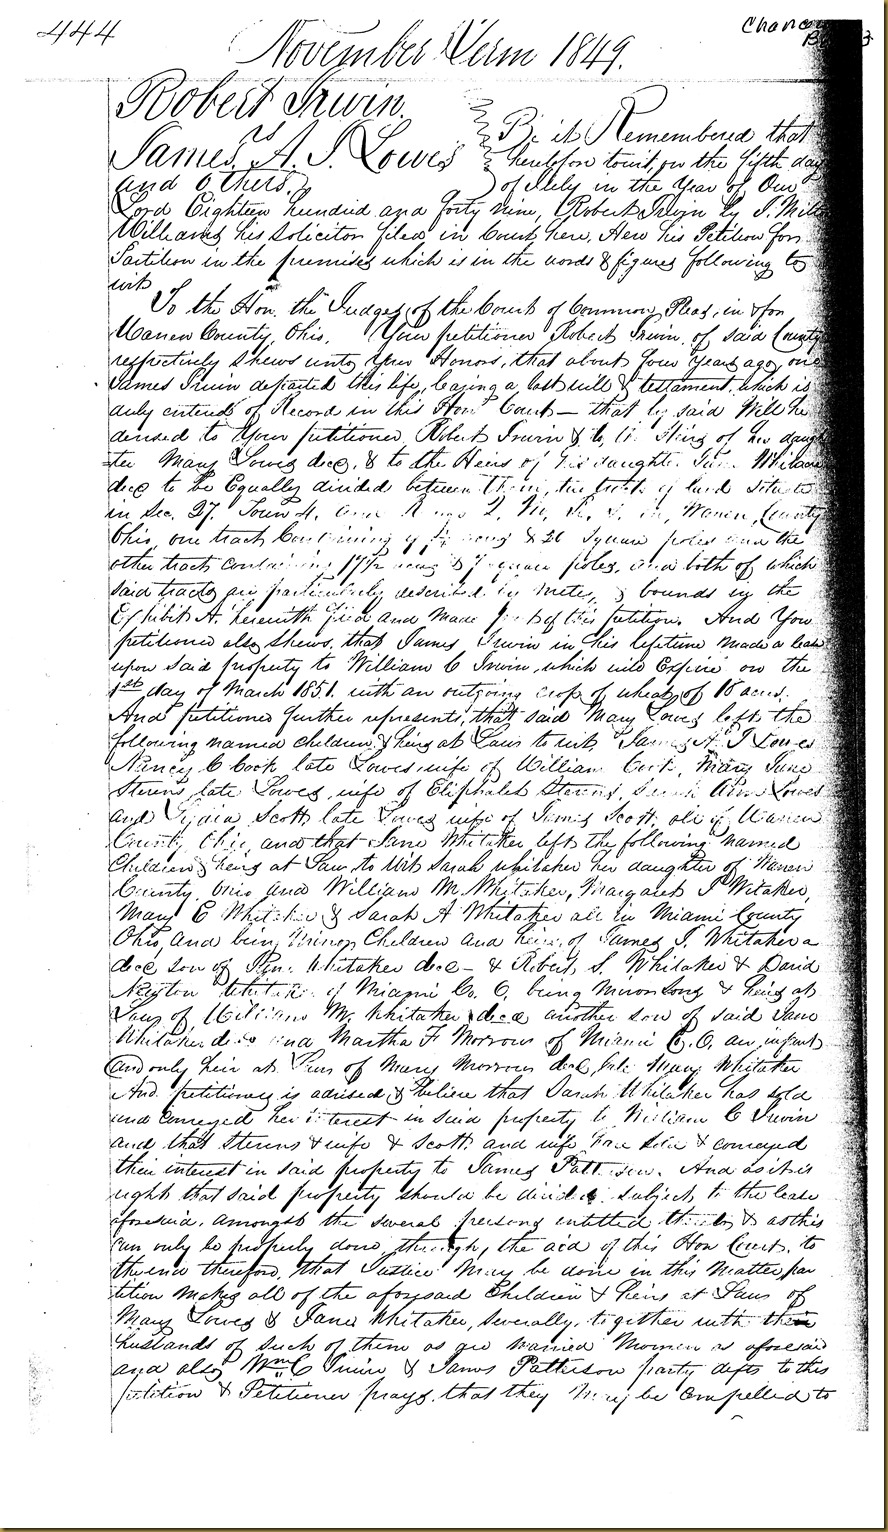 444
November Term 1849.
Chancery
Robert Irwin
vs
James A. J. Lowes
and others.
Be it Remembered that
heretofore towit, on the fifth day
of July in the Year of Our
Lord Eighteen hundred and forty nine, Robert Irwin by J. Milton
Williams his solicitor filed in Court here, Here his Petition for
Partition in the premises which is in the words & figures following to
wit
To the Hon. the Judges of the Court of Common Pleas, in & for
Warren County, Ohio. Your petitioner Robert Irwin of said County
respectively shews unto Your Honors, that about four Years ago, one
James Irwin departed this life, leaving a last will & testament, which is
duly entered of Record in this Hon. Court — that by said Will he
devised to Your petitioner Robert Irwin & to the Heirs of his daugh
ter Mary Lowes decd. & to the Heirs of his daughter Jane Whitaker
decd to be Equally divided between them, two tracts of land situate
in Sec. 27. Town 4. and Range 2. in, Warren, County
Ohio, one tract Containing & 26 Square poles and the
other tract containing 17½ & 7 square poles, and both of which
said tracts are particularly described by metes & bounds in the
Exhibit A. herewith filed and made part of this petition. And Your
petitioner also shews, that James Irwin in his lifetime made a lease
upon said property to William C Irwin, which will Expire on the
1st day of March 1851. with an outgoing crop of wheat of 18 acres.
And petitioner further represents, that said Mary Lowes left the
following named children & heirs at Law to wit, James A. J Lowes
Nancy C Cook late Lowes, wife of William Cook, Mary Jane
Sterns late Lowes, wife of Eliphalet Sterns, Sarah Ann Lowes
and Lydia Scott late Lowes wife of James Scott, all of Warren
County Ohio, and that Jane Whitaker left the following named
Children & heirs at Law to Wit Sarah whitaker her daughter of Warren
County, Ohio and William M. Whitaker, Margaret J Witaker,
Mary E Whitaker & Sarah A Whitaker all in Miami County
Ohio, and being Minor Children and heirs of James J. Whitaker a
decd son of Jane Whitaker decd – & Robert S. Whitaker & David
Newton Whitaker of Miami Co. O. being Minor Sons & heirs at
Law of William M. Whitaker decd another son of said Jane
Whitaker decd and Martha F Morrow of Miami C. O. an infant
and only heir at Law of Mary Morrow decd, late Mary Whitaker
And petitioner is advised & believe that Sarah Whitaker has sold
and conveyed her interest in said property to William C Irwin
and that Sterns & wife & Scott and wife have sold & conveyed
their interest in said property to James Patterson. And as it is
right that said property should be divided subject to the lease
aforesaid, amongst the several persons intitled thereto, & as this
can only be properly done through, the aid of this Hon Court, to
the end therefore, that Justice may be done in this Matter, pe
tition makes all of the aforesaid Children & heirs at Law of
Mary Lowes & Jane Whitaker, severally, together with their
husbands of such of them as are married Women as aforesaid
and also Wm C Irwin & James Patterson party defts to this
petition & Petitioner prays, that they may be compelled to